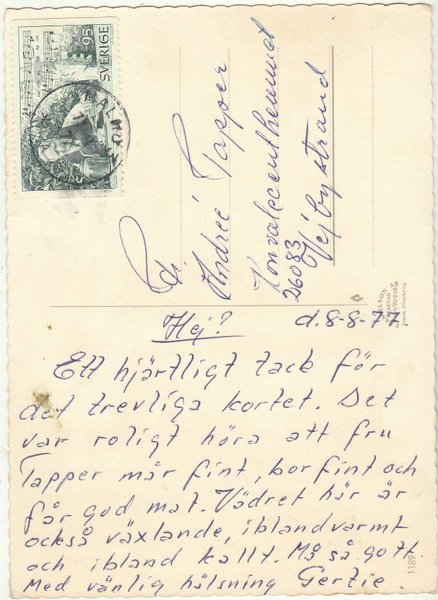 95
SVERIGE
Fr. Andreé Tapper
Konvalecenthemmet
26083
Vejbystrand
Hej!
d. 8-8-77
Ett hjärtligt tack för
det trevliga kortet. Det
var roligt höra att fru
Tapper mår fint, bor fint och
får god mat. Vädret här är
också växlande, ibland varmt
och ibland kallt. Må så gott.
Med vänlig hälsning Gertie.